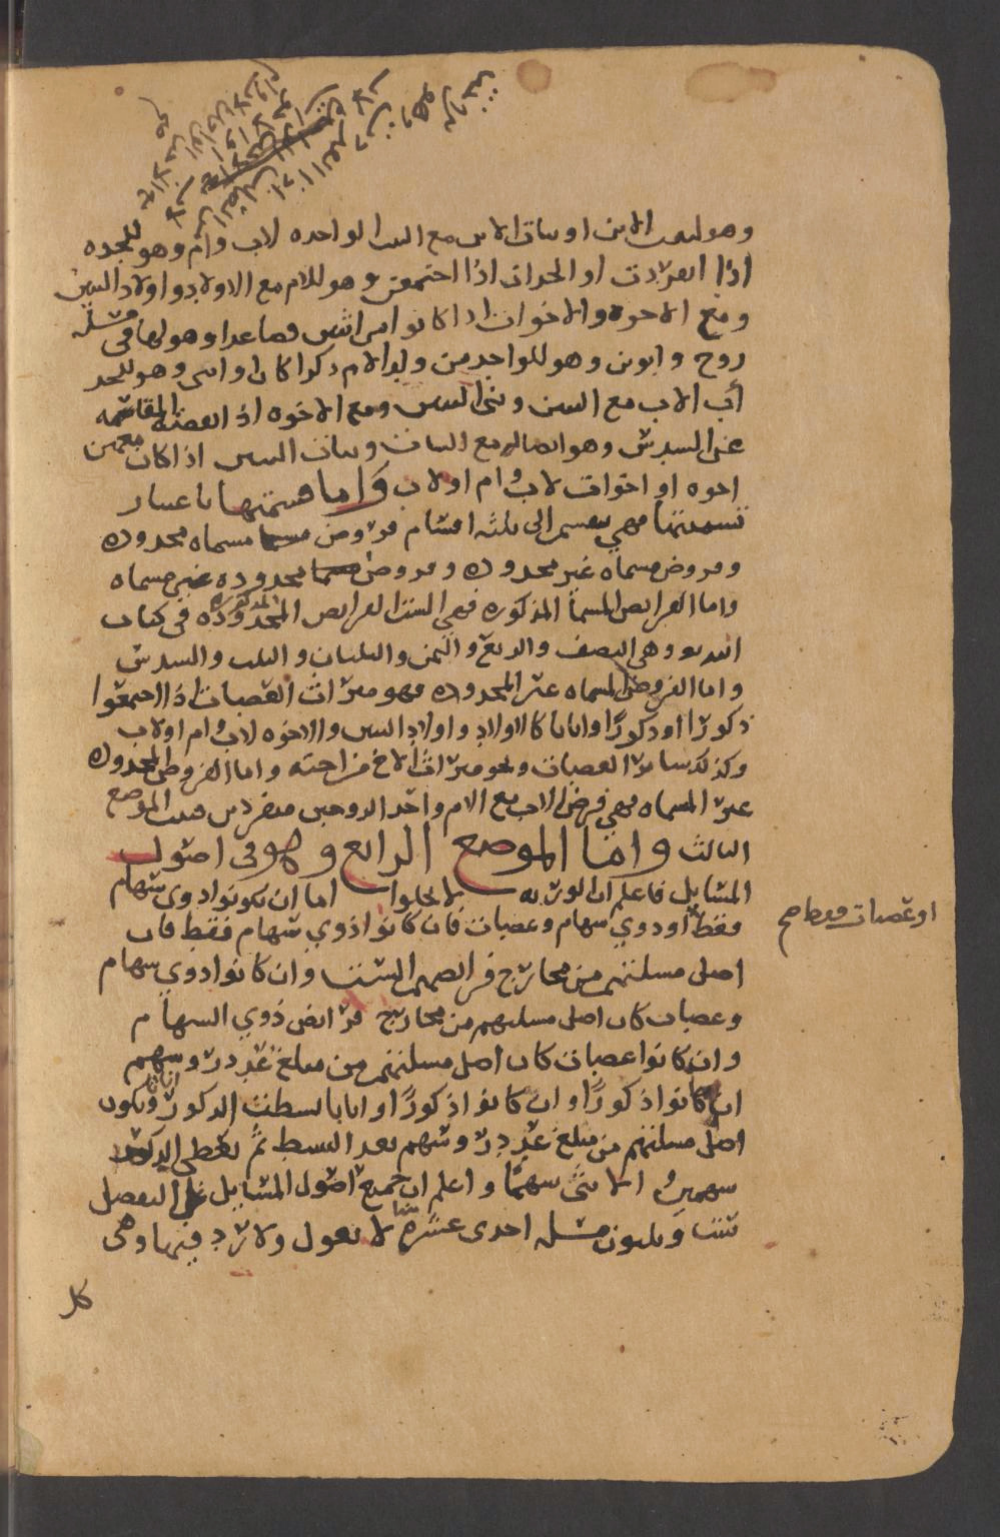 وهو لبنت الابن او بنات الابن مع البنت الواحده لاب وام وهو للجده
اذا انفردت او الجدات اذا اجتمعن وهو للام مع الاولاد واولاد البنين
ومع الاخوه والاخوات اذا كانوا من اثنين فصاعدا وهو لها في مسله
زوج وابوين وهو للواحد من ولد الام ذكرا كان او انثى وهو للجد
أب الاب مع البنين وبني البنين ومع الاخوه اذا نقصته المقاسمه
عن السدس وهو ايضا له مع البنات وبنات البنين اذا كان معهن
اخوه او اخوات لاب وام او لاب واما قسمتها باعتبار
تسميتها فهي تنقسم الى ثلثه اقسام فروض مسماه محدوده
وفروض مسماه غير محدوده وفروض محدوده غير مسماه
واما الفرايض المسما المذكوره فهي الست الفرايض المحدوده المذكوره في كتاب
الله وهي النصف والربع والثمن والثلثان والثلث والسدس
واما الفروض المسماه غير المحدوده فهو ميراث العصبات اذا اجتمعوا
ذكورًا او ذكورًا واناثا كالاولاد واولاد البنين والاخوه لاب وام او لاب
وكذلك ساير العصبات ونحو ميراث الاخ من اخته واما الفروض المحدوده
غير المسماه فهي فرض الاب مع الام واحد الزوجين منفردين هذا الموضع
الثالث واما الموضع الرابع وهو في اصول
المسايل فاعلم ان الورثه لا يخلوا اما ان يكونوا ذوي سهام
فقط او ذوي سهام وعصبات فان كانوا ذوي سهام فقط فان
او عصبات فقط صح
اصل مسلتهم من مخارج فرايضهم الست وان كانوا ذوي سهام
وعصبات كان اصل مسلتهم من مخارج فرايض ذوي السهام
وان كانوا عصبات كان اصل مسلتهم من مبلغ عدد روسهم
ان كانوا ذكورًا او اناثا وان كانوا ذكورًا واناثا بسطت الذكور ويكون
اصل مسلتهم من مبلغ عدد روسهم بعد البسط ثم تعطي الذكر
سهمين والانثى سهمًا واعلم ان جميع اصول المسايل على التفصيل
ست وثلثون مسله احدى عشره منها لا تعول ولا ترد فيها وهي
كل